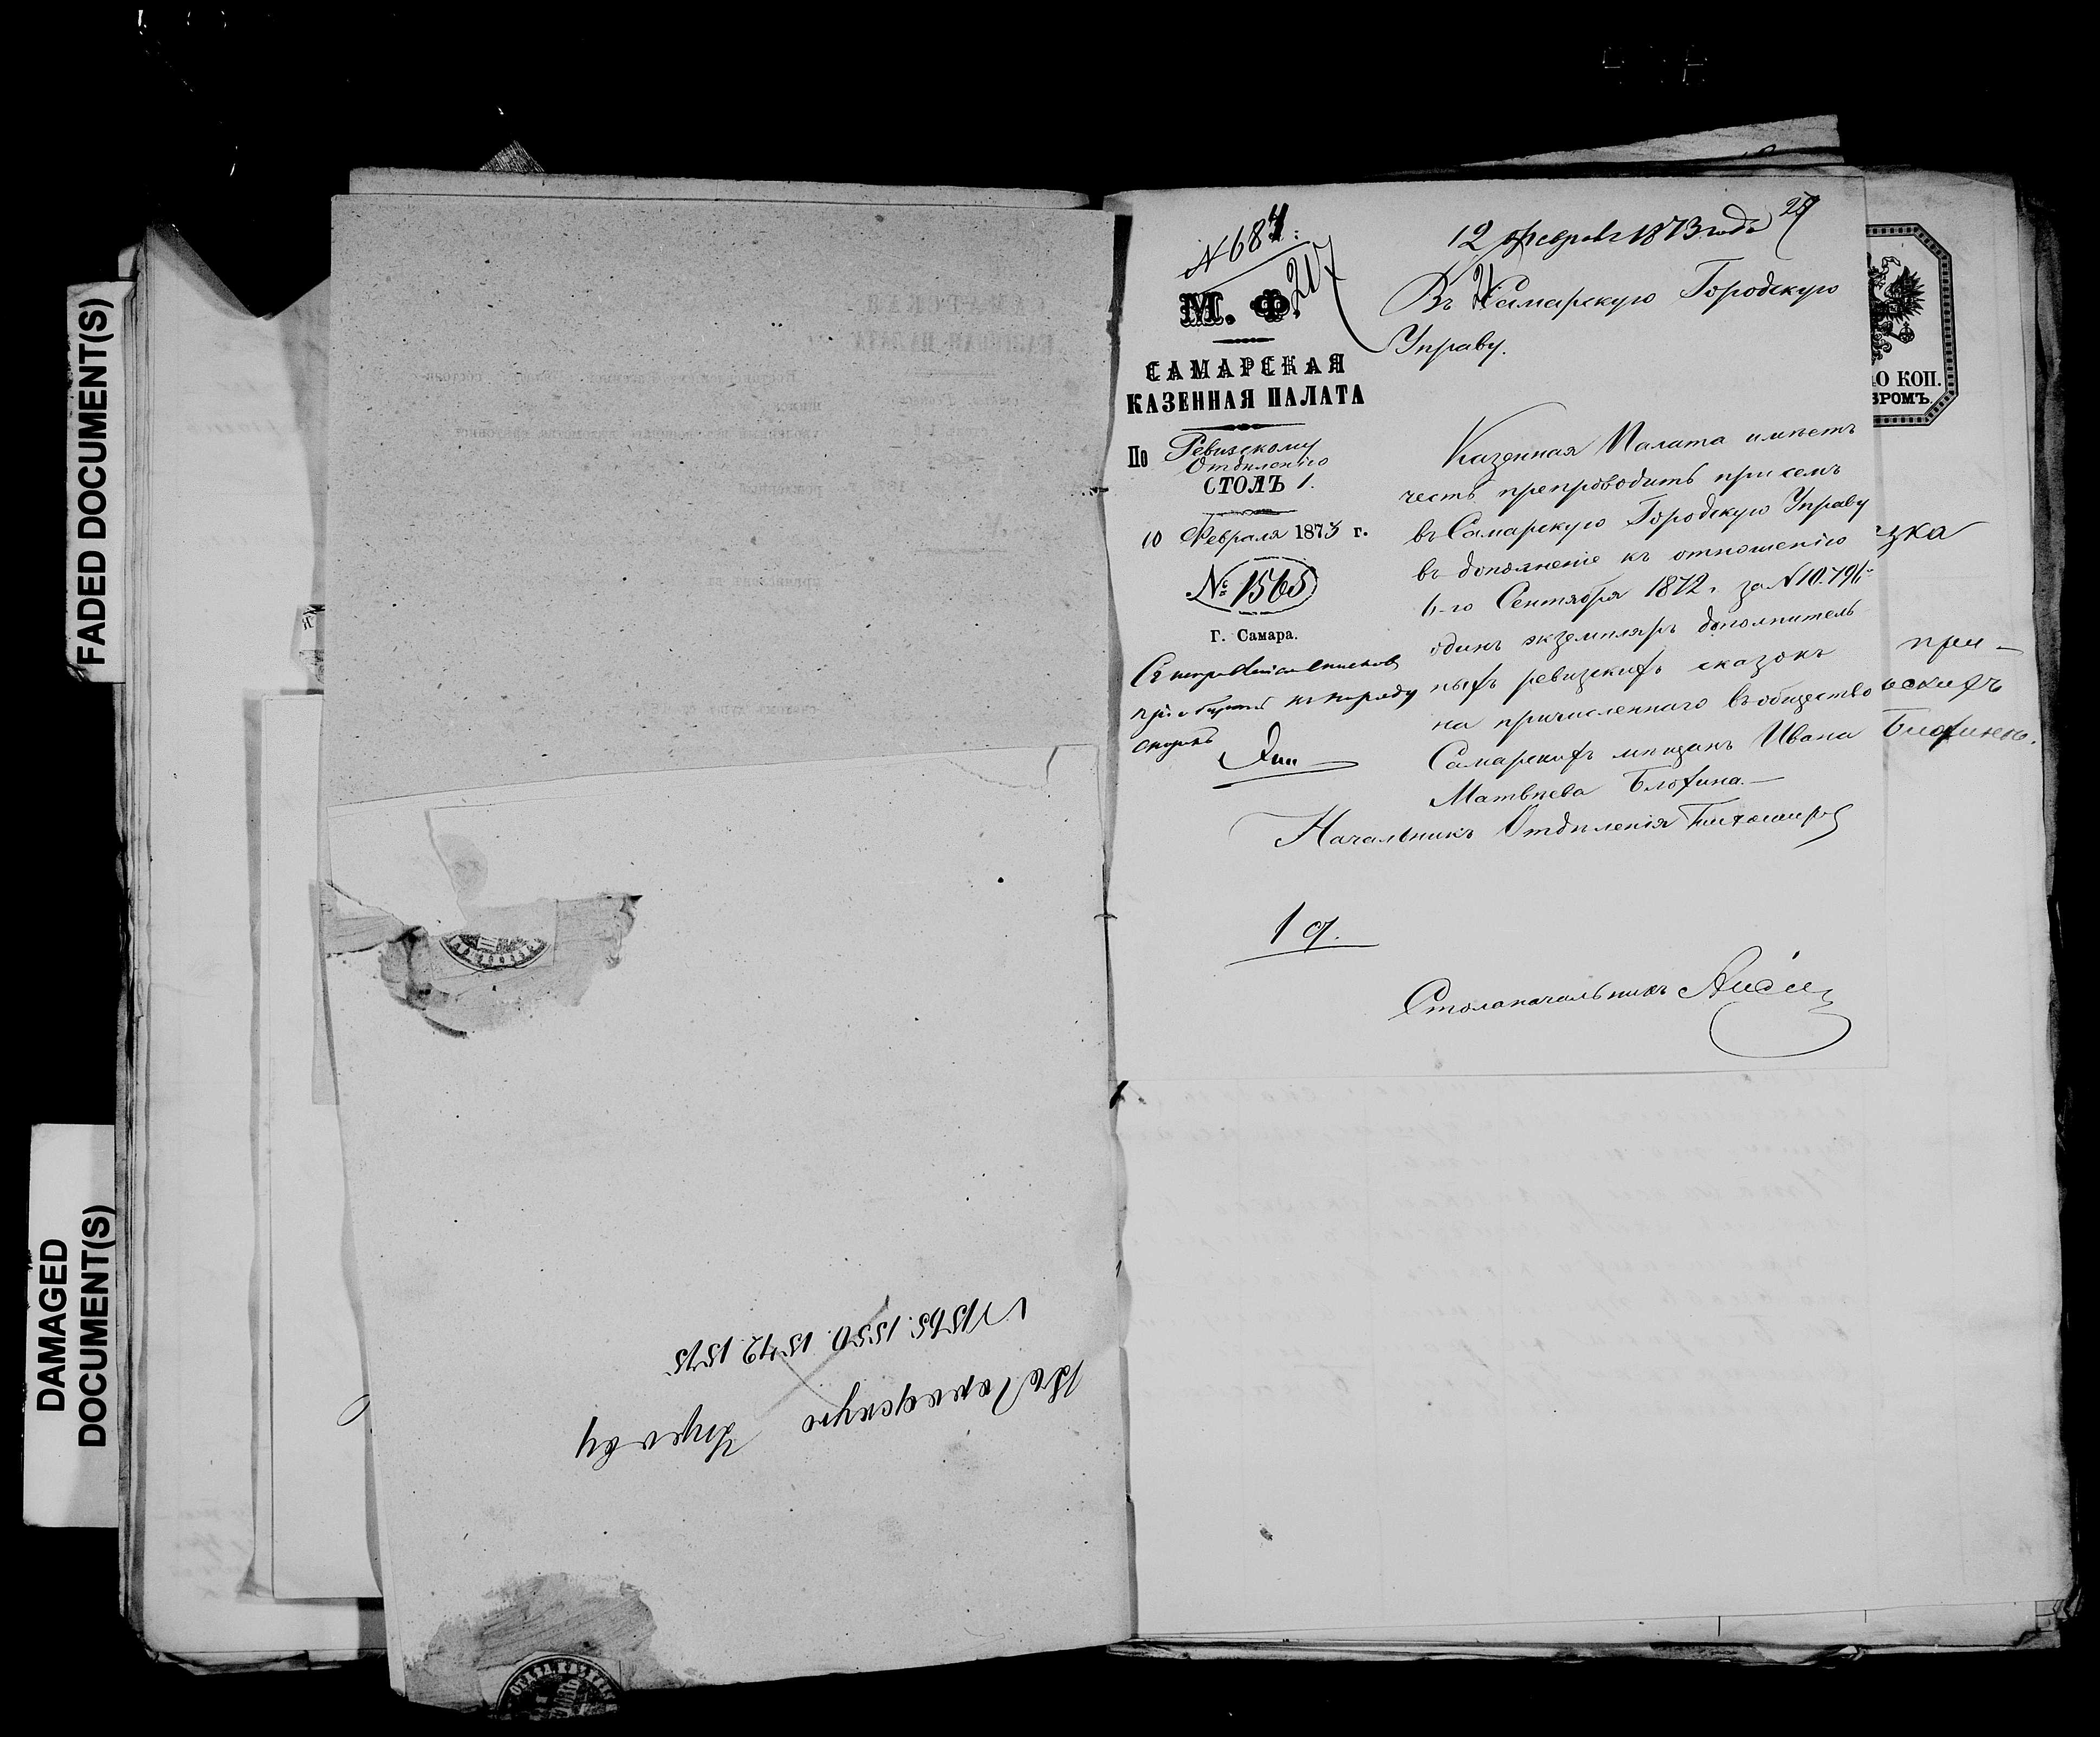 FADED DOCUMENT(S)
DAMAGED
DOCUMENT(S)
Въ Городскую Управу
№ 1565. 1550. 1542. 1575
№ 684:
217
М. Ф.
САМАРСКАЯ
КАЗЕННАЯ ПАЛАТА
По Ревизскому
Отдѣленію
СТОЛЪ 1.
10 Февраля 1873 г.
№ 1565
Г. Самара.
12 февраля 1873 года
27
Въ Самарскую Городскую
Управу.
Казенная Палата имѣетъ
честь препроводить при семъ
въ Самарскую Городскую Управу
въ дополненіе къ отношенію
6-го Сентября 1872 г. за № 10.796
одинъ экземпляръ дополнитель
ныхъ ревизскихъ сказокъ
на причисленнаго въ общество
Самарскихъ мѣщанъ Ивана
Матвѣева Блохина.
Начальникъ Отдѣленія
1 д.
Столоначальникъ
О КОП.
БРОМЪ.
зка
при-
скихъ